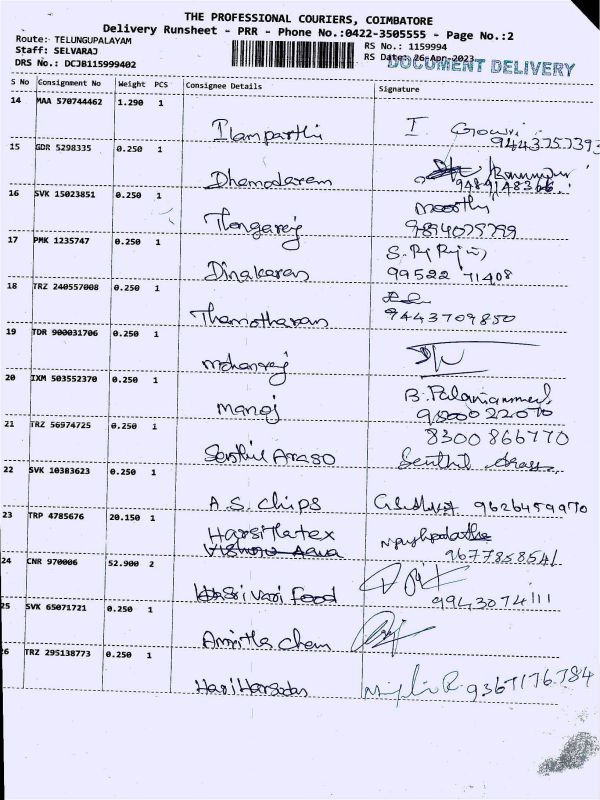 THE PROFESSIONAL COURIERS, COIMBATORE
Delivery Runsheet - PRR - Phone No.:0422-3505555 - Page No.:2
Route: TELUNGUPALAYAM
Staff: SELVARAJ
DRS No.: DCJB115999402
RS No.: 1159994
RS Date: 26-Apr-2023
DOCUMENT DELIVERY
S No Consignment No Weight PCS Consignee Details Signature
14 MAA 570744462 1.290 1
Ilamparthi I. Gowri
9443757393
15 GDR 5298335 0.250 1
Dhamodaram
16 SVK 15023851 0.250 1
Moorthy
Thangaraj 9894075799
17 PMK 1235747 0.250 1
Dinakaran 99522 71408
18 TRZ 240557008 0.250 1
Thamotharan 9443709850
19 TDR 900031706 0.250 1
Mohanraj
20 IXM 503552370 0.250 1
Manoj
21 TRZ 56974725 0.250 1 8300866770
Senthil Arasu Senthil Arasu
22 SVK 10383623 0.250 1
A.S. Chips 9626459970
23 TRP 4785676 20.150 1
Harsithatex
9677858541
24 CNR 970006 52.900 2
Food 9943074111
25 SVK 65071721 0.250 1
Amirtha Chem
26 TRZ 295138773 0.250 1
9367176784